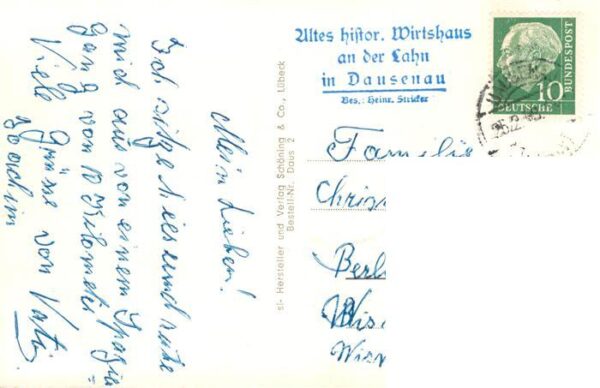 Meine Lieben!
Ich sitze hier und ruhe
mich aus von einem Spazier=
gang von 10 Kilometer
Viele Grüsse von Vati
Joachim
sl- Hersteller und Verlag Schöning & Co., Lübeck
Bestell-Nr. Daus 2
Altes histor. Wirtshaus
an der Lahn
in Dausenau
Bes.: Heinr. Stricker
10
DEUTSCHE
BUNDESPOST
Familie
Chris
Berl
Wis
Wism